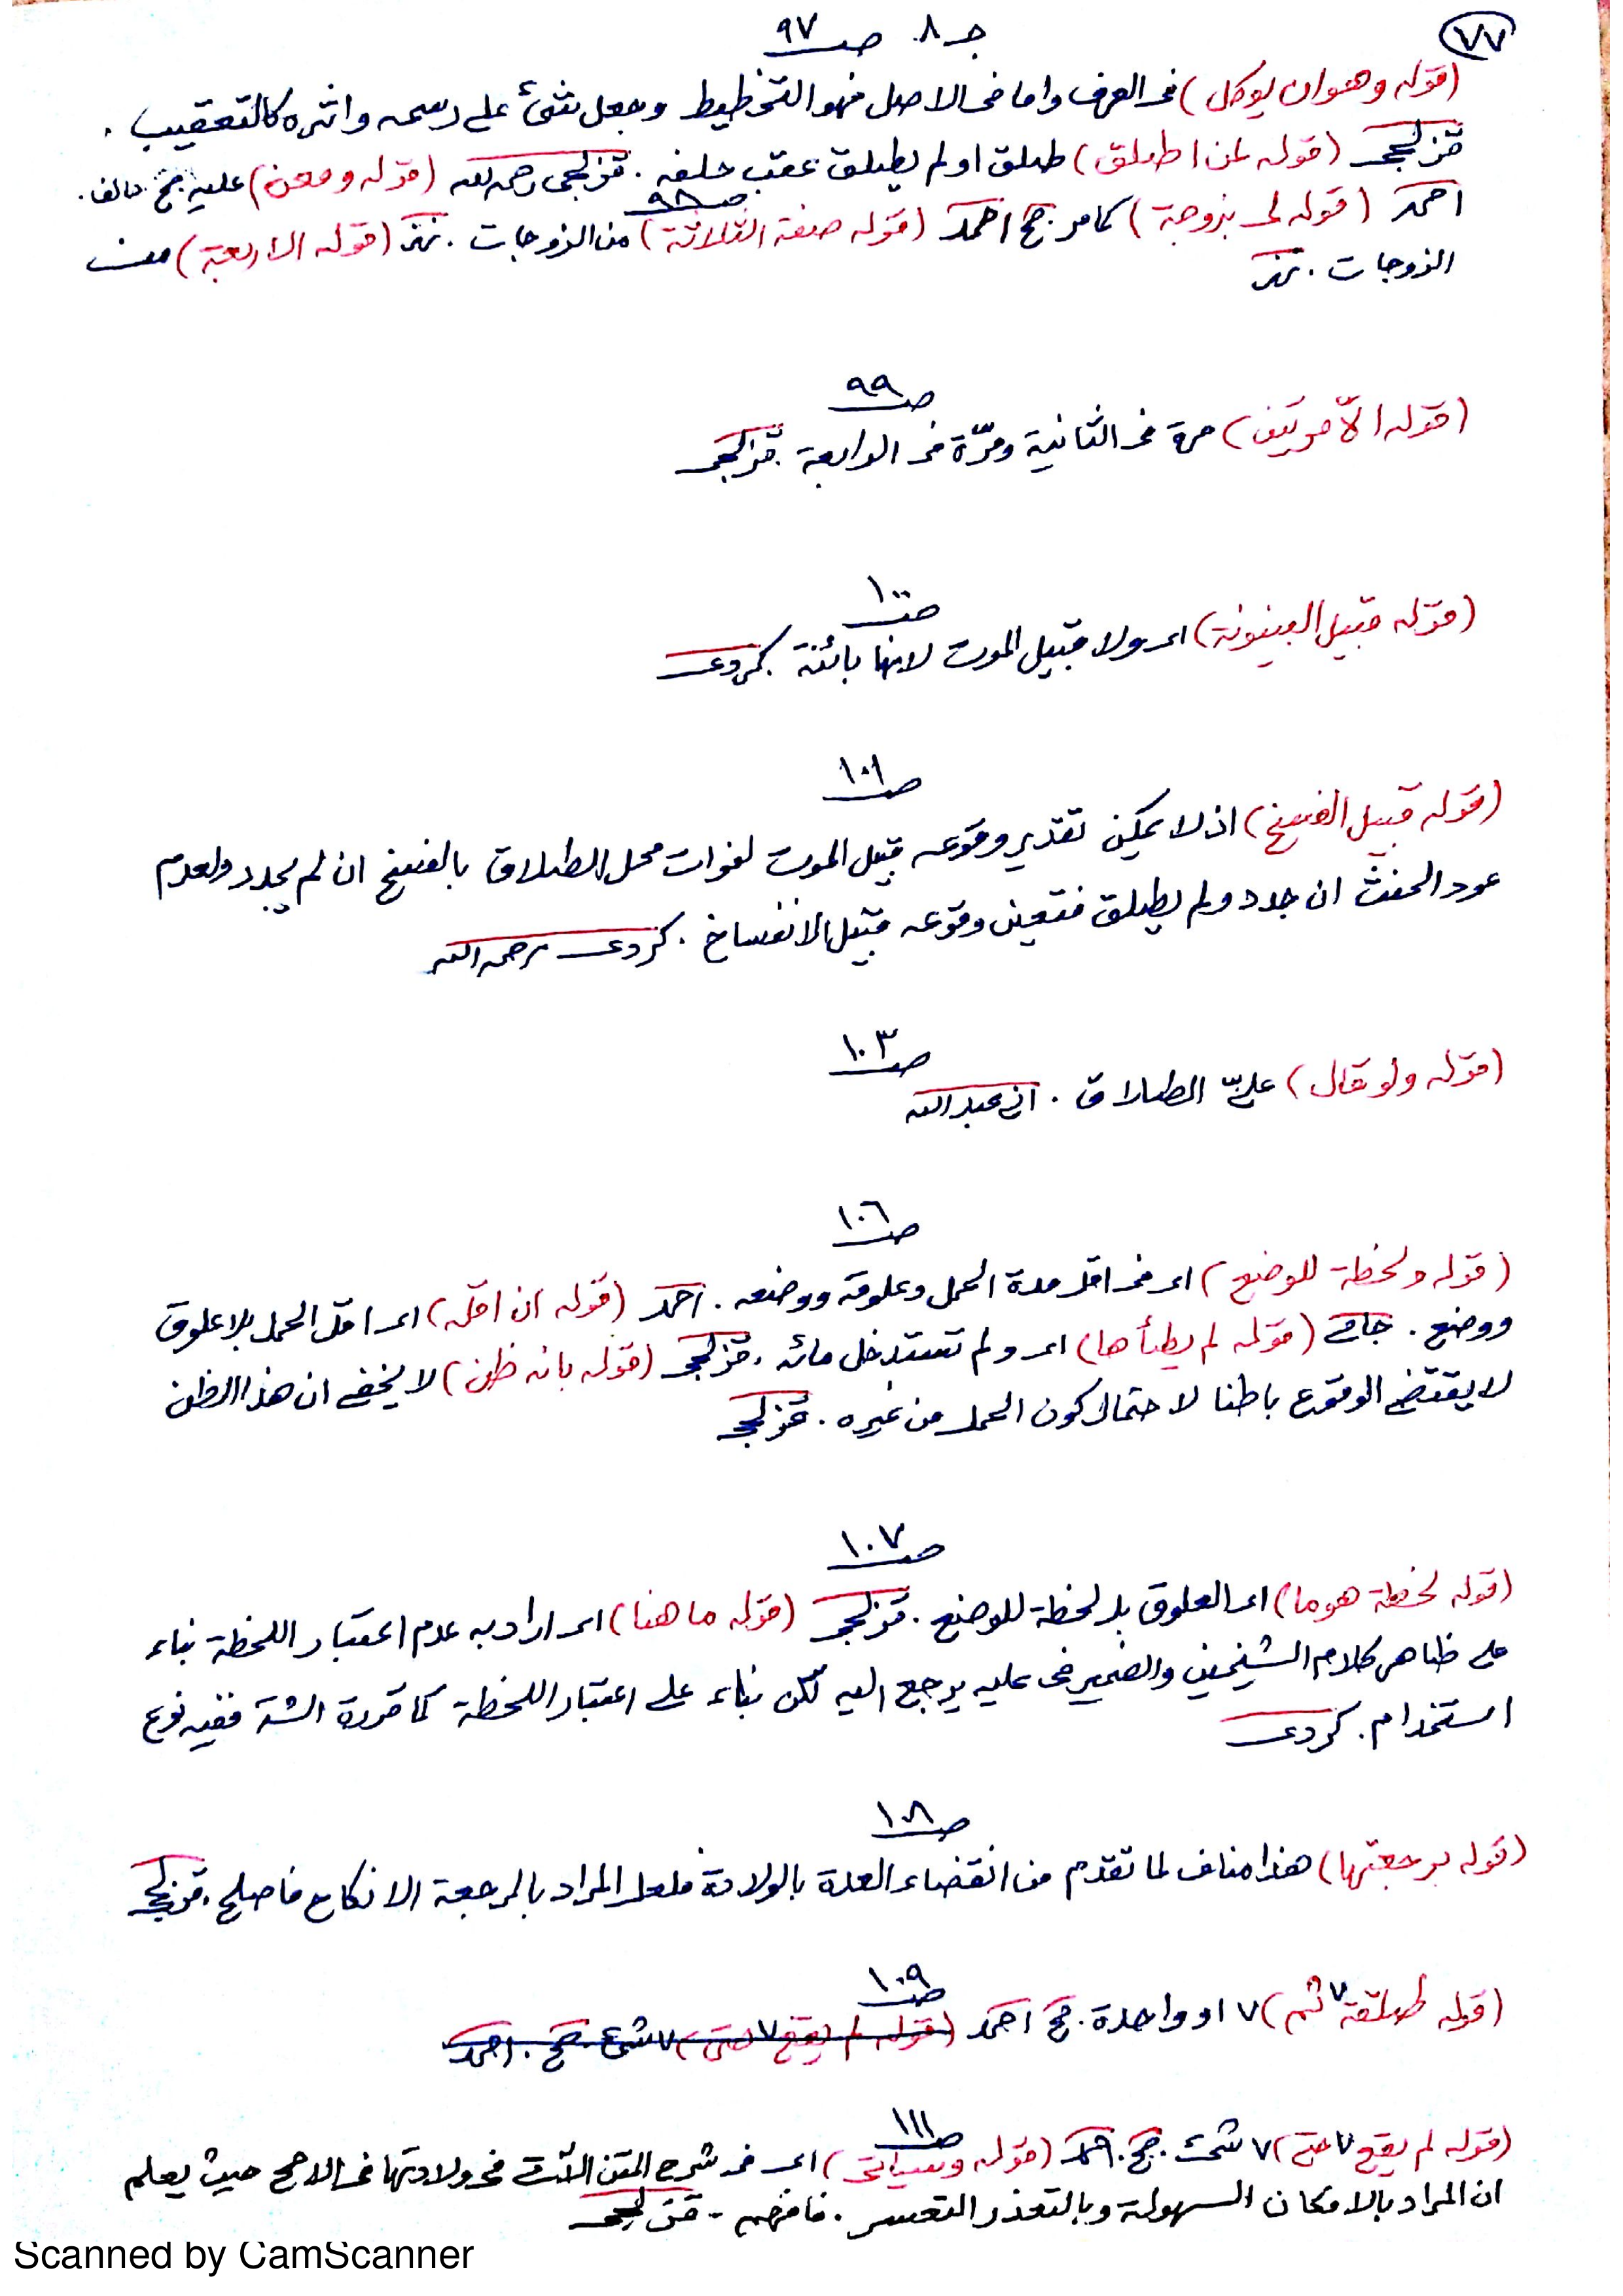 ٧٧
جـ ٨. صـ ٩٧
(قوله وهو ان يوكل) فى العرف واما فى الاصل فهو التخطيط وجعل شئ على رسمه واثره كالتعقيب.
قزلجى (قوله لمن اطلق) طلق او لم يطلق عقب حلفه. قزلجى رحمه الله (قوله ومعن) عليه جح
احمد (قوله لى بزوجة) كما مر. جح احمد (قوله صفة الثلاثة) من الزوجات. (قوله الاربعة) من
صـ ٩٨
الزوجات.
صـ ٩٩
(قوله الّا مرتين) مرة فى الثانية ومرّة فى الرابعة. قزلجى
صـ ١٠٠
(قوله قبيل البينونة) اى ولا قبيل الموت لانها بائنة. كردى
صـ ١٠١
(قوله قبيل الفسخ) اذ لا يمكن تقدير وقوعه قبيل الموت لفوات محل الطلاق بالفسخ ان لم يجدد ولعدم
عود الحنث ان جدد ولم يطلق فتعين وقوعه قبيل الانفساخ. كردى رحمه الله
صـ ١٠٣
(قوله ولو قال) علىّ الطلاق. عبد الله
صـ ١٠٦
(قوله ولحظة للوضع) اى فى اقل مدة الحمل وعلوقه ووضعه. احمد (قوله ان اقله) اى اقل الحمل بلا علوق
ووضع. (قوله لم يطأها) اى ولم تستدخل مائه. قزلجى (قوله بانه ظن) لا يخفى ان هذا الظن
لا يقتضى الوقوع باطنا لاحتمال كون الحمل من غيره. قزلجى
صـ ١٠٧
(قوله لحظة هوما) اى العلوق بل لحظة للوضع. قزلجى (قوله ما هنا) اى اراد به عدم اعتبار اللحظة بناء
على ظاهر كلام الشيخين والضمير فى عليه يرجع اليه لكن بناء على اعتبار اللحظة كما قرره الشـ ففيه نوع
استخدام. كردى
صـ ١٠٨
(قوله برجعتها) هذا مناف لما تقدم من انقضاء العدة بالولادة فلعل المراد بالرجعة الانكاح فاصلح. قزلجى
صـ ١٠٩
(قوله طلقة ٧ ثم) ٧ او واحدة. جح احمد (قوله لم يقع ٧ حتى) ٧ شئ. جح. احمد
صـ ١١١
(قوله لم يقع ٧ حتى) ٧ شئ. جح. احمد (قوله وسيأتى) اى فى شرح المتن الآتى فى ولادتها فى الاصح حيث يعلم
ان المراد بالامكان السهولة وبالتعذر التعسر. فافهم. قزلجى
Scanned by CamScanner